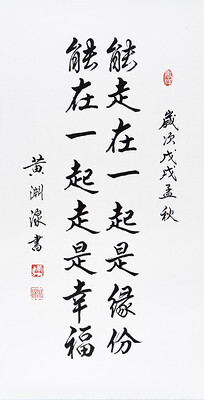 歲次戊戌孟秋
能走在一起是緣份
能在一起走是幸福
黃淵淥書